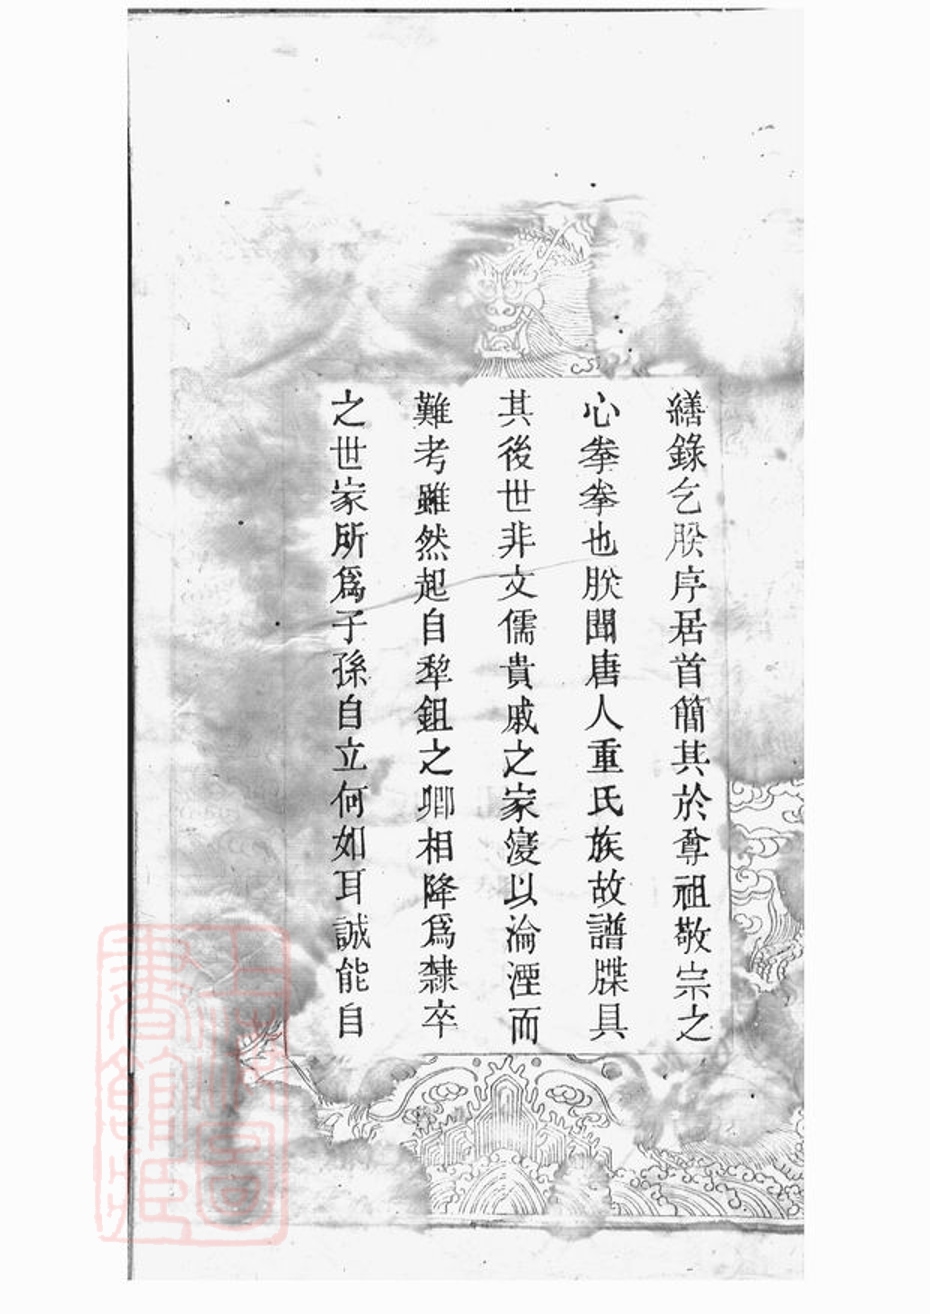 繕錄乞朕序居首簡其於尊祖敬宗之
心拳拳也朕聞唐人重氏族故譜牒具
其後世非文儒貴戚之家寖以淪湮而
難考雖然起自犁鉏之卿相降爲隸卒
之世家所爲子孫自立何如耳誠能自
上海圖書館藏